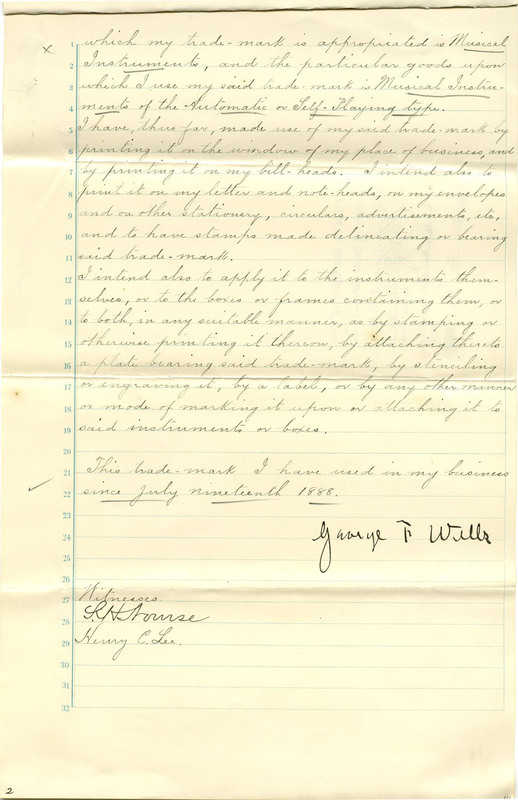 x
1 which my trade-mark is appropriated is Musical
2 Instruments, and the particular goods upon
3 which I use my said trade-mark is Musical Instru-
4 ments of the Automatic or Self-Playing type.
5 I have, thus far, made use of my said trade-mark by
6 printing it on the window of my place of business, and
7 by printing it on my bill-heads. I intend also to
8 print it on my letter and note-heads, on my envelopes
9 and on other stationery, circulars, advertisements, etc,
10 and to have stamps made delineating or bearing
11 said trade-mark.
12 I intend also to apply it to the instruments them-
13 selves, or to the boxes or frames containing them, or
14 to both, in any suitable manner, as by stamping or
15 otherwise printing it thereon, by attaching thereto
16 a plate bearing said trade-mark, by stenciling
17 or engraving it, by a label, or by any other manner
18 or mode of marking it upon or attaching it to
19 said instruments or boxes.
20
21 This trade-mark I have used in my business
22 since July nineteenth 1888.
23
24 George F Wells
25
26
27 Witnesses.
28 Nourse
29 Henry C. Lee.
30
31
32
2